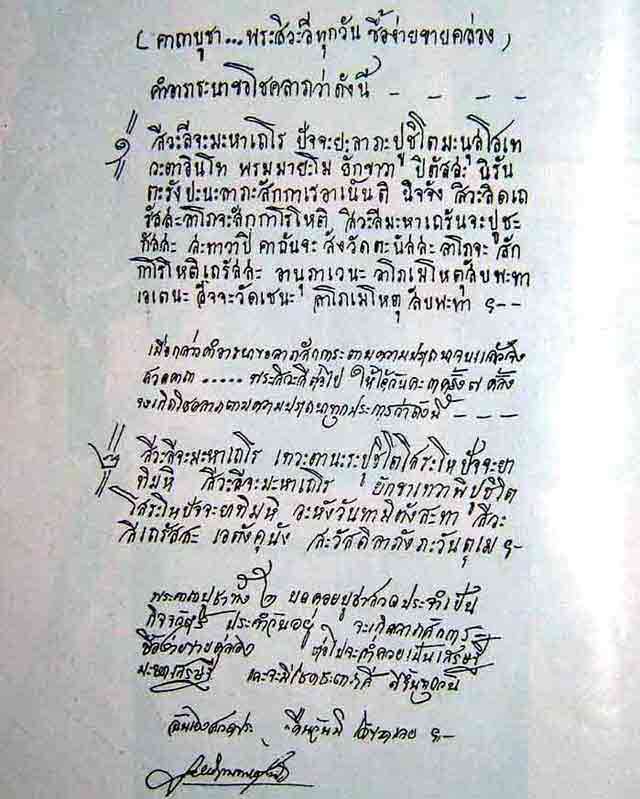 ( คาถาบูชา...พระสิวะลีทุกวัน ซื้อง่ายขายคล่อง )
คำอาราธนาขอโชคลาภว่าดังนี้ - - - -
๑ สีวะลีจะมะหาเถโร ปัจจะยะลาภะปูชิโตมะนุสโสเท
วะตาอินโท พรมมายะโม ยักขาวา ปิตัสสะ นิรัน
ตะรังปะนะลาภะสักกาเรอาเน็นติ นิจจัง สีวะลิดเถ
รัสสะลาโภจะสักกาโรโหติ สีวะลีมะหาเถรันจะปูชะ
กัสสะ สะทาวาปิ คาฉันจะ สังวัดตะนิสสะ ลาโภจะ สัก
กาโรโหติเถรัสสะ อานุภาเวนะ ลาโภเมโหตุสับพะทา
เอเตนะ สัจจะวัดเชนะ ลาโภเมโหตุ สับพะทา ฯ--
เมื่อกล่าวคำอาราธนาขอลาภสักการะตามความปรารถนาจบแล้วจึง
สวดคาถา ..... พระสิวะลีต่อไป ให้ได้วันละ ๓ ครั้ง ๗ ครั้ง
จะเกิดโชคลาภตามความปรารถนาทุกประการว่าดังนี้ - - - -
๒ สีวะลีจะมะหาเถโร เทวะตานะระปูชิโตโสระโหปัจจะยา
ทิมหิ สีวะลีจะมะหาเถโร ยักขาเทวาพิปูชิโต
โสระโหปัจจะยาทิมหิ อะหังวันทามิตังสะทา สีวะ
ลีเถรัสสะ เอตังคุนัง สะวัสดิลาภังภะวันตุเม ฯ-
พระคาถาบูชาทั้ง ๒ บทคอยบูชาสวดประจำเป็น
กิจวัตร ประจำวันอยู่ จะเกิดลาภสักการะ
ซื้อง่ายขายคล่อง ต่อไปจะร่ำรวยเป็นเศรษฐี
มะหาเศรษฐี และจะมีโชคชะตาดี ดีขึ้นทุกวัน